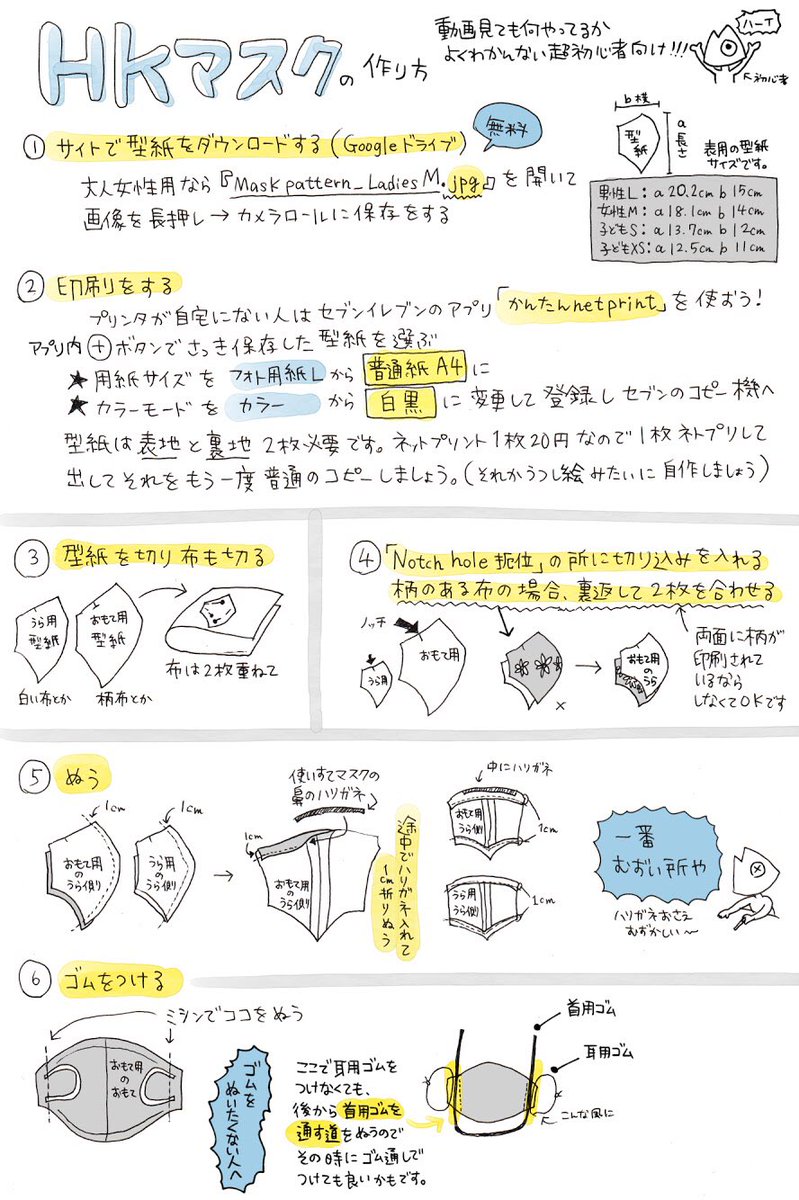 HKマスクの作り方
動画見ても何やってるか
よくわかんない超初心者向け!!!
ハーイ
初心者
① サイトで型紙をダウンロードする(Googleドライブ)
無料
大人女性用なら『Mask pattern_Ladies M.jpg』を開いて
画像を長押し→カメラロールに保存をする
b 横
a 長さ
型紙
表用の型紙
サイズです。
男性L:a 20.2cm b 15cm
女性M:a 18.1cm b 14cm
子どもS:a 13.7cm b 12cm
子どもXS:a 12.5cm b 11cm
② 印刷をする
プリンタが自宅にない人はセブンイレブンのアプリ「かんたんnetprint」を使おう!
アプリ内⊕ボタンでさっき保存した型紙を選ぶ
★用紙サイズをフォト用紙Lから普通紙A4に
★カラーモードをカラーから白黒に変更して登録しセブンのコピー機へ
型紙は表地と裏地2枚必要です。ネットプリント1枚20円なので1枚ネトプリして
出してそれをもう一度普通のコピーしましょう。(それかうつし絵みたいに自作しましょう)
③ 型紙を切り布も切る
うら用
型紙
おもて用
型紙
白い布とか
柄布とか
布は2枚重ねて
④「Notch hole 扼位」の所に切り込みを入れる
柄のある布の場合、裏返して2枚を合わせる
ノッチ
うら用
おもて用
×
おもて用
のうら
両面に柄が
印刷されて
いるなら
しなくてOKです
⑤ ぬう
1cm
1cm
おもて用
のうら側
うら用
のうら側
使いすてマスクの
鼻のハリガネ
1cm
おもて用の
うら側
途中でハリガネ入れて
1cm折りぬう
中にハリガネ
おもて用
うら側
1cm
うら用
うら側
1cm
一番
むずい所や
ハリガネおさえ
むずかしい~
⑥ ゴムをつける
ミシンでココをぬう
おもて用
の
おもて
ゴムを
ぬいたくない人へ
ここで耳用ゴムを
つけなくても、
後から首用ゴムを
通す道をぬうので
その時にゴム通しで
つけても良いかもです。
首用ゴム
耳用ゴム
こんな風に